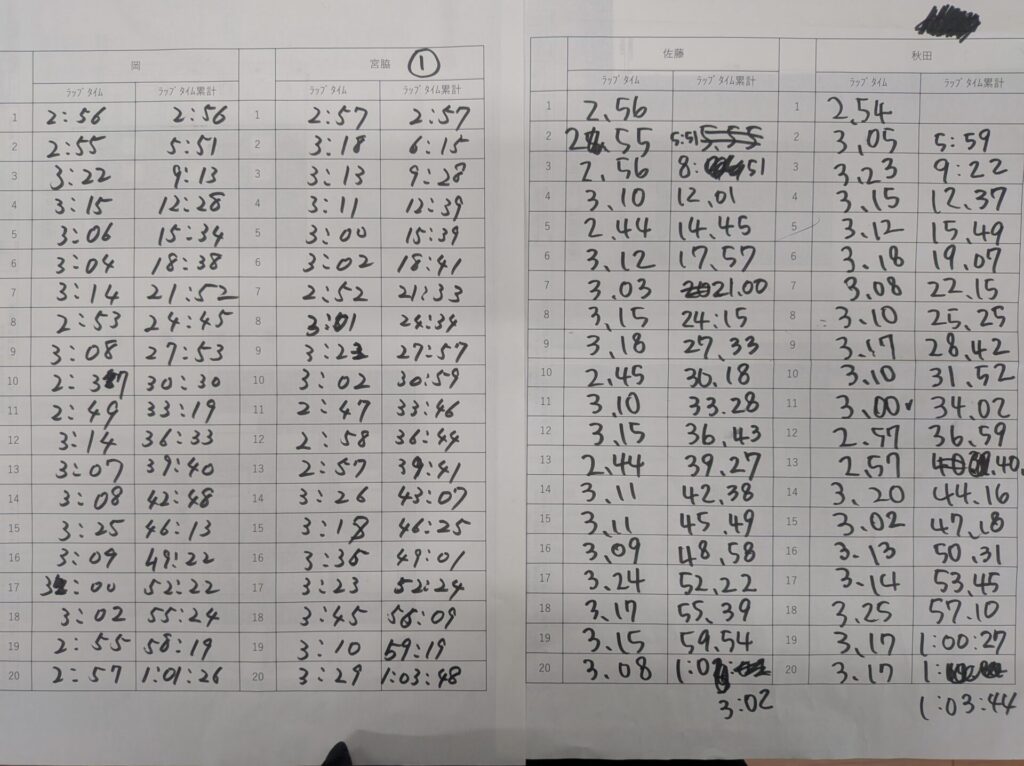 岡 宮脇 ① 佐藤 秋田
ﾗｯﾌﾟﾀｲﾑ ﾗｯﾌﾟﾀｲﾑ累計 ﾗｯﾌﾟﾀｲﾑ ﾗｯﾌﾟﾀｲﾑ累計 ﾗｯﾌﾟﾀｲﾑ ﾗｯﾌﾟﾀｲﾑ累計 ﾗｯﾌﾟﾀｲﾑ ﾗｯﾌﾟﾀｲﾑ累計
1 2:56 2:56 1 2:57 2:57 1 2.56 1 2.54
2 2:55 5:51 2 3:18 6:15 2 2.55 5:51 2 3.05 5:59
3 3:22 9:13 3 3:13 9:28 3 2.56 8:51 3 3.23 9:22
4 3:15 12:28 4 3:11 12:39 4 3.10 12.01 4 3.15 12.37
5 3:06 15:34 5 3:00 15:39 5 2.44 14.45 5 3.12 15.49
6 3:04 18:38 6 3:02 18:41 6 3.12 17.57 6 3.18 19.07
7 3:14 21:52 7 2:52 21:33 7 3.03 21.00 7 3.08 22.15
8 2:53 24:45 8 3:01 24:34 8 3.15 24:15 8 3.10 25.25
9 3:08 27:53 9 3:23 27:57 9 3.18 27.33 9 3.17 28.42
10 2:37 30:30 10 3:02 30:59 10 2.45 30.18 10 3.10 31.52
11 2:49 33:19 11 2:47 33:46 11 3.10 33.28 11 3.00 34.02
12 3:14 36:33 12 2:58 36:44 12 3.15 36.43 12 2.57 36.59
13 3:07 39:40 13 2:57 39:41 13 2.44 39.27 13 2.57
14 3:08 42:48 14 3:26 43:07 14 3.11 42.38 14 3.20 44.16
15 3:25 46:13 15 3:18 46:25 15 3.11 45.49 15 3.02 47.18
16 3:09 49:22 16 3:36 49:01 16 3.09 48.58 16 3.13 50.31
17 3:00 52:22 17 3:23 52:24 17 3.24 52.22 17 3.14 53.45
18 3:02 55:24 18 3:45 56:09 18 3.17 55.39 18 3.25 57.10
19 2:55 58:19 19 3:10 59:19 19 3.15 59.54 19 3.17 1:00:27
20 2:57 1:01:26 20 3:29 1:03:48 20 3.08 20 3.17
3:02 1:03:44